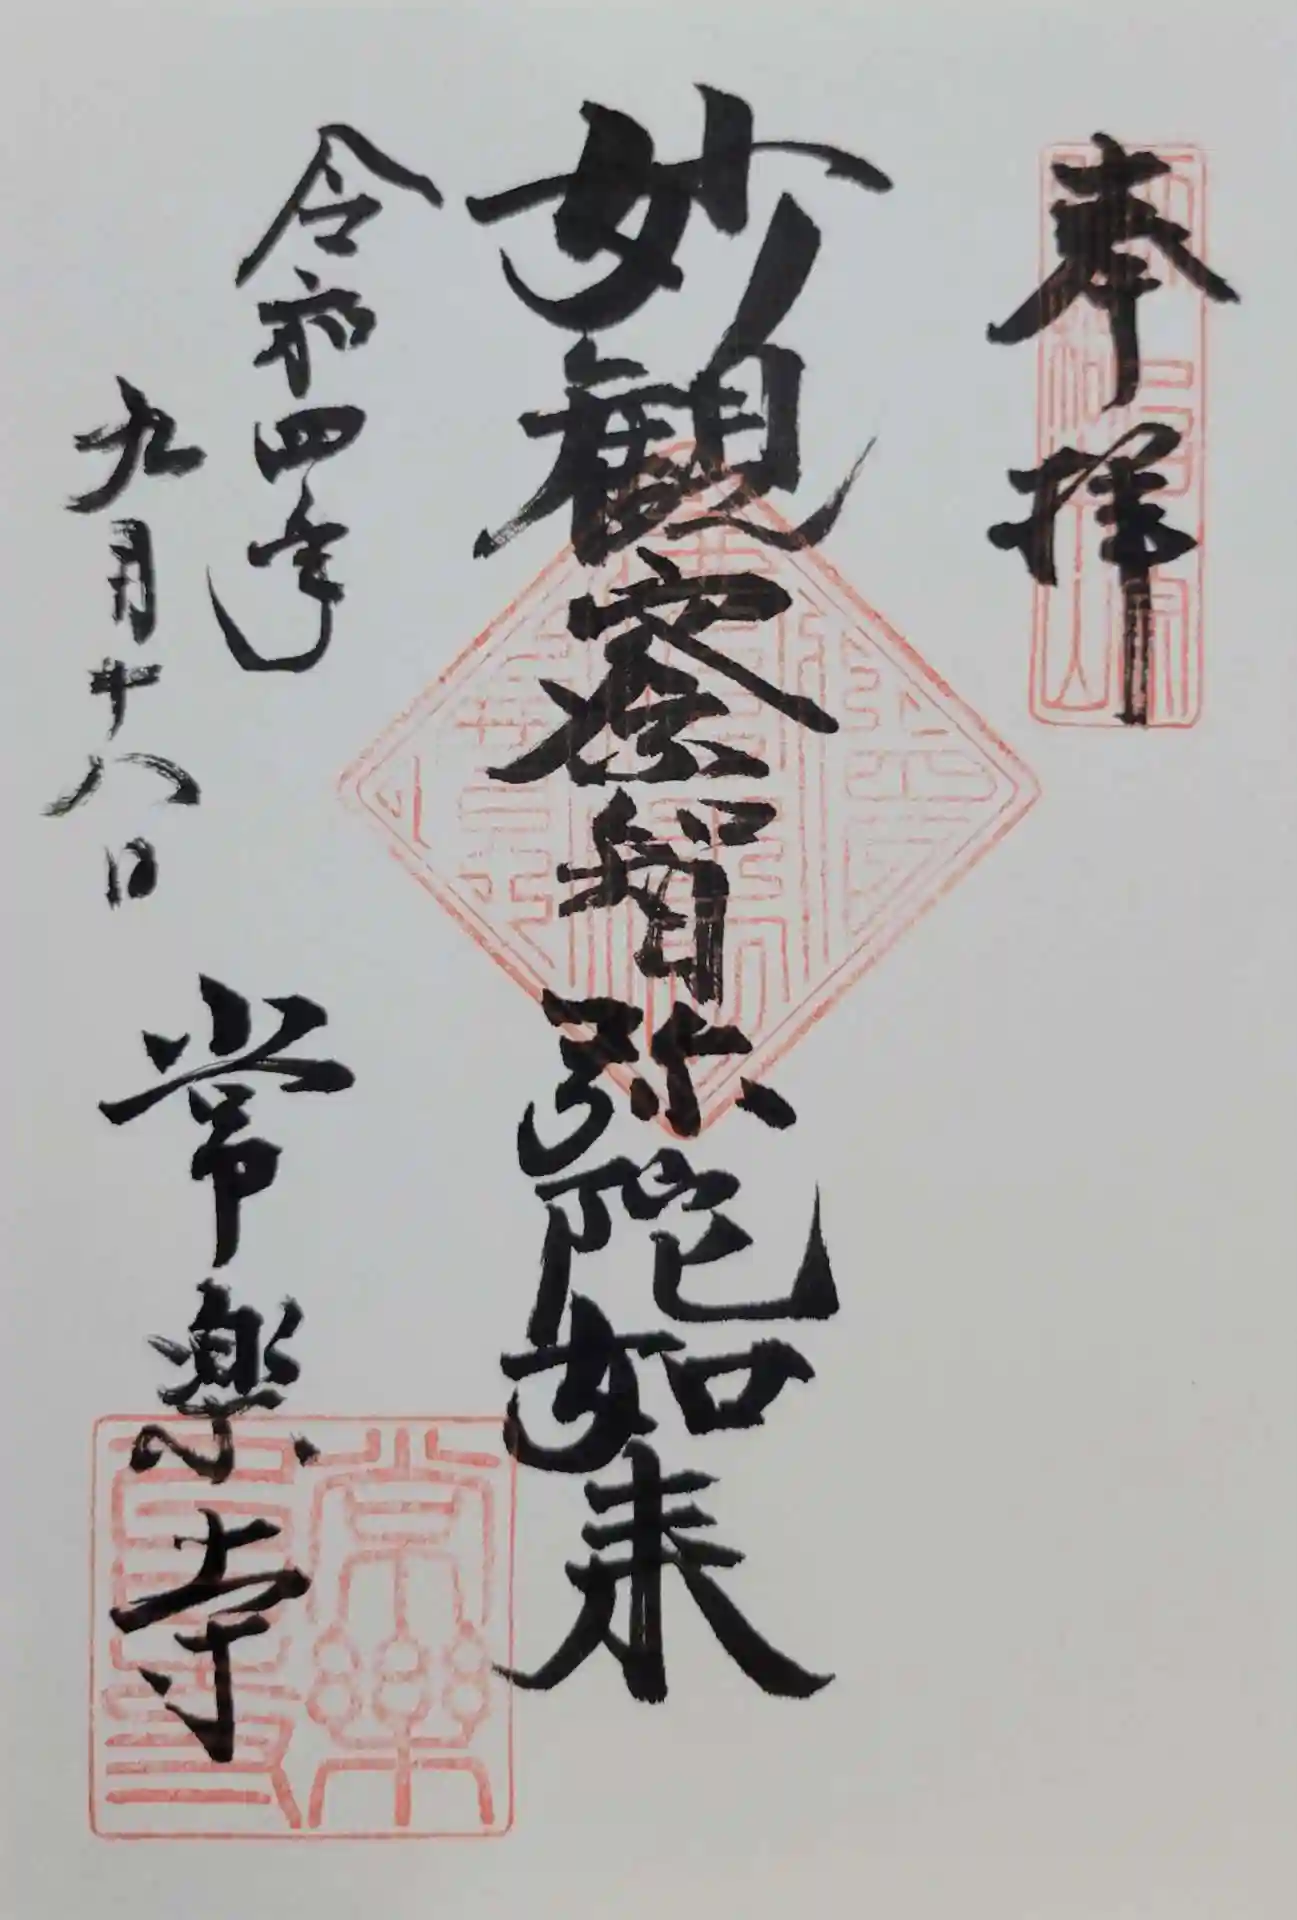 奉拝
妙観察智弥陀如来
令和四年
九月十八日
常楽寺
常樂